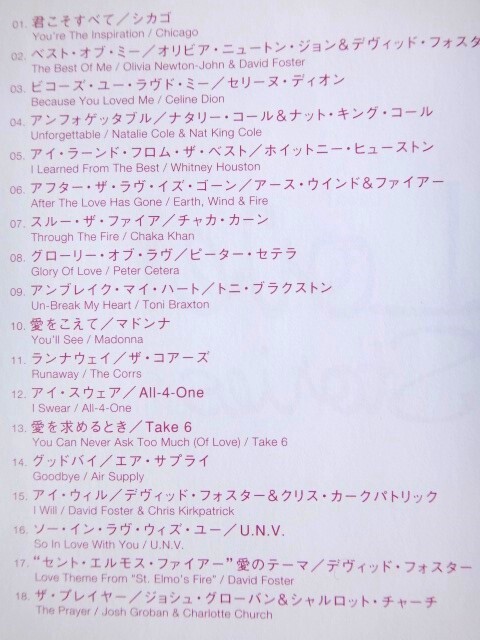 01. 君こそすべて／シカゴ
You're The Inspiration / Chicago
02. ベスト・オブ・ミー／オリビア・ニュートン・ジョン＆デヴィッド・フォスタ
The Best Of Me / Olivia Newton-John & David Foster
03. ビコーズ・ユー・ラヴド・ミー／セリーヌ・ディオン
Because You Loved Me / Celine Dion
04. アンフォゲッタブル／ナタリー・コール＆ナット・キング・コール
Unforgettable / Natalie Cole & Nat King Cole
05. アイ・ラーンド・フロム・ザ・ベスト／ホイットニー・ヒューストン
I Learned From The Best / Whitney Houston
06. アフター・ザ・ラヴ・イズ・ゴーン／アース・ウインド＆ファイアー
After The Love Has Gone / Earth, Wind & Fire
07. スルー・ザ・ファイア／チャカ・カーン
Through The Fire / Chaka Khan
08. グローリー・オブ・ラヴ／ピーター・セテラ
Glory Of Love / Peter Cetera
09. アンブレイク・マイ・ハート／トニ・ブラクストン
Un-Break My Heart / Toni Braxton
10. 愛をこえて／マドンナ
You'll See / Madonna
11. ランナウェイ／ザ・コアーズ
Runaway / The Corrs
12. アイ・スウェア／All-4-One
I Swear / All-4-One
13. 愛を求めるとき／Take 6
You Can Never Ask Too Much (Of Love) / Take 6
14. グッドバイ／エア・サプライ
Goodbye / Air Supply
15. アイ・ウィル／デヴィッド・フォスター＆クリス・カークパトリック
I Will / David Foster & Chris Kirkpatrick
16. ソー・イン・ラヴ・ウィズ・ユー／U.N.V.
So In Love With You / U.N.V.
17. “セント・エルモス・ファイアー”愛のテーマ／デヴィッド・フォスター
Love Theme From "St. Elmo's Fire" / David Foster
18. ザ・プレイヤー／ジョシュ・グローバン＆シャルロット・チャーチ
The Prayer / Josh Groban & Charlotte Church